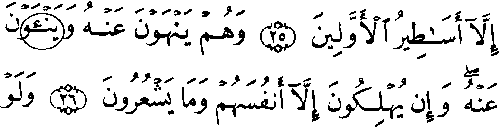 إِلَّآ أَسَٰطِيرُ ٱلْأَوَّلِينَ ٢٥ وَهُمْ يَنْهَوْنَ عَنْهُ وَيَنْـَٔوْنَ
عَنْهُۖ وَإِن يُهْلِكُونَ إِلَّآ أَنفُسَهُمْ وَمَا يَشْعُرُونَ ٢٦ وَلَوْ